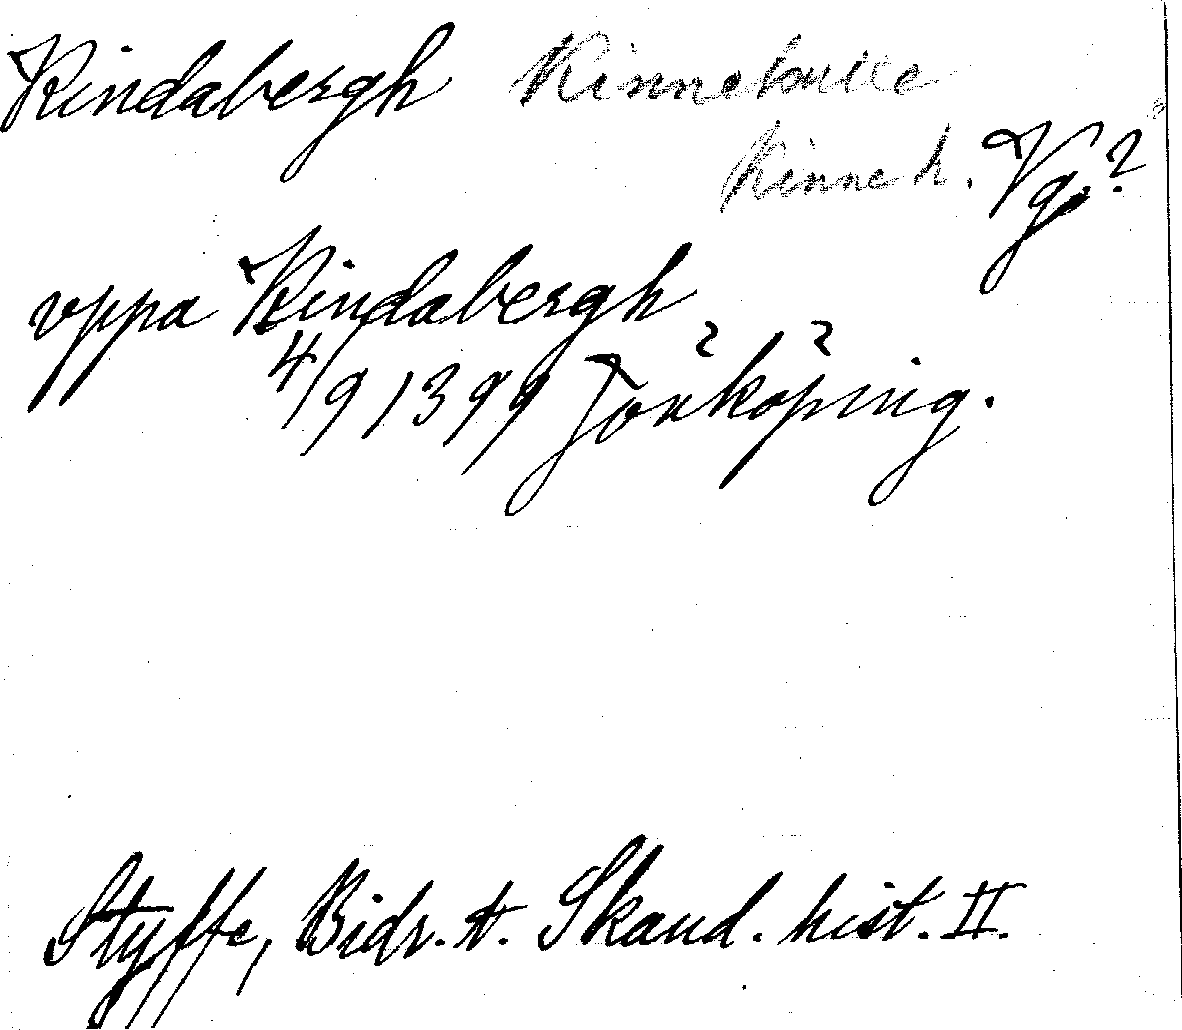 Kindabergh Kinnekulle
Kinne h. Vg.?
vppa Kindabergh
4/9 1399 Jönköping.
Styffe, Bidr. t. Skand. hist. II.